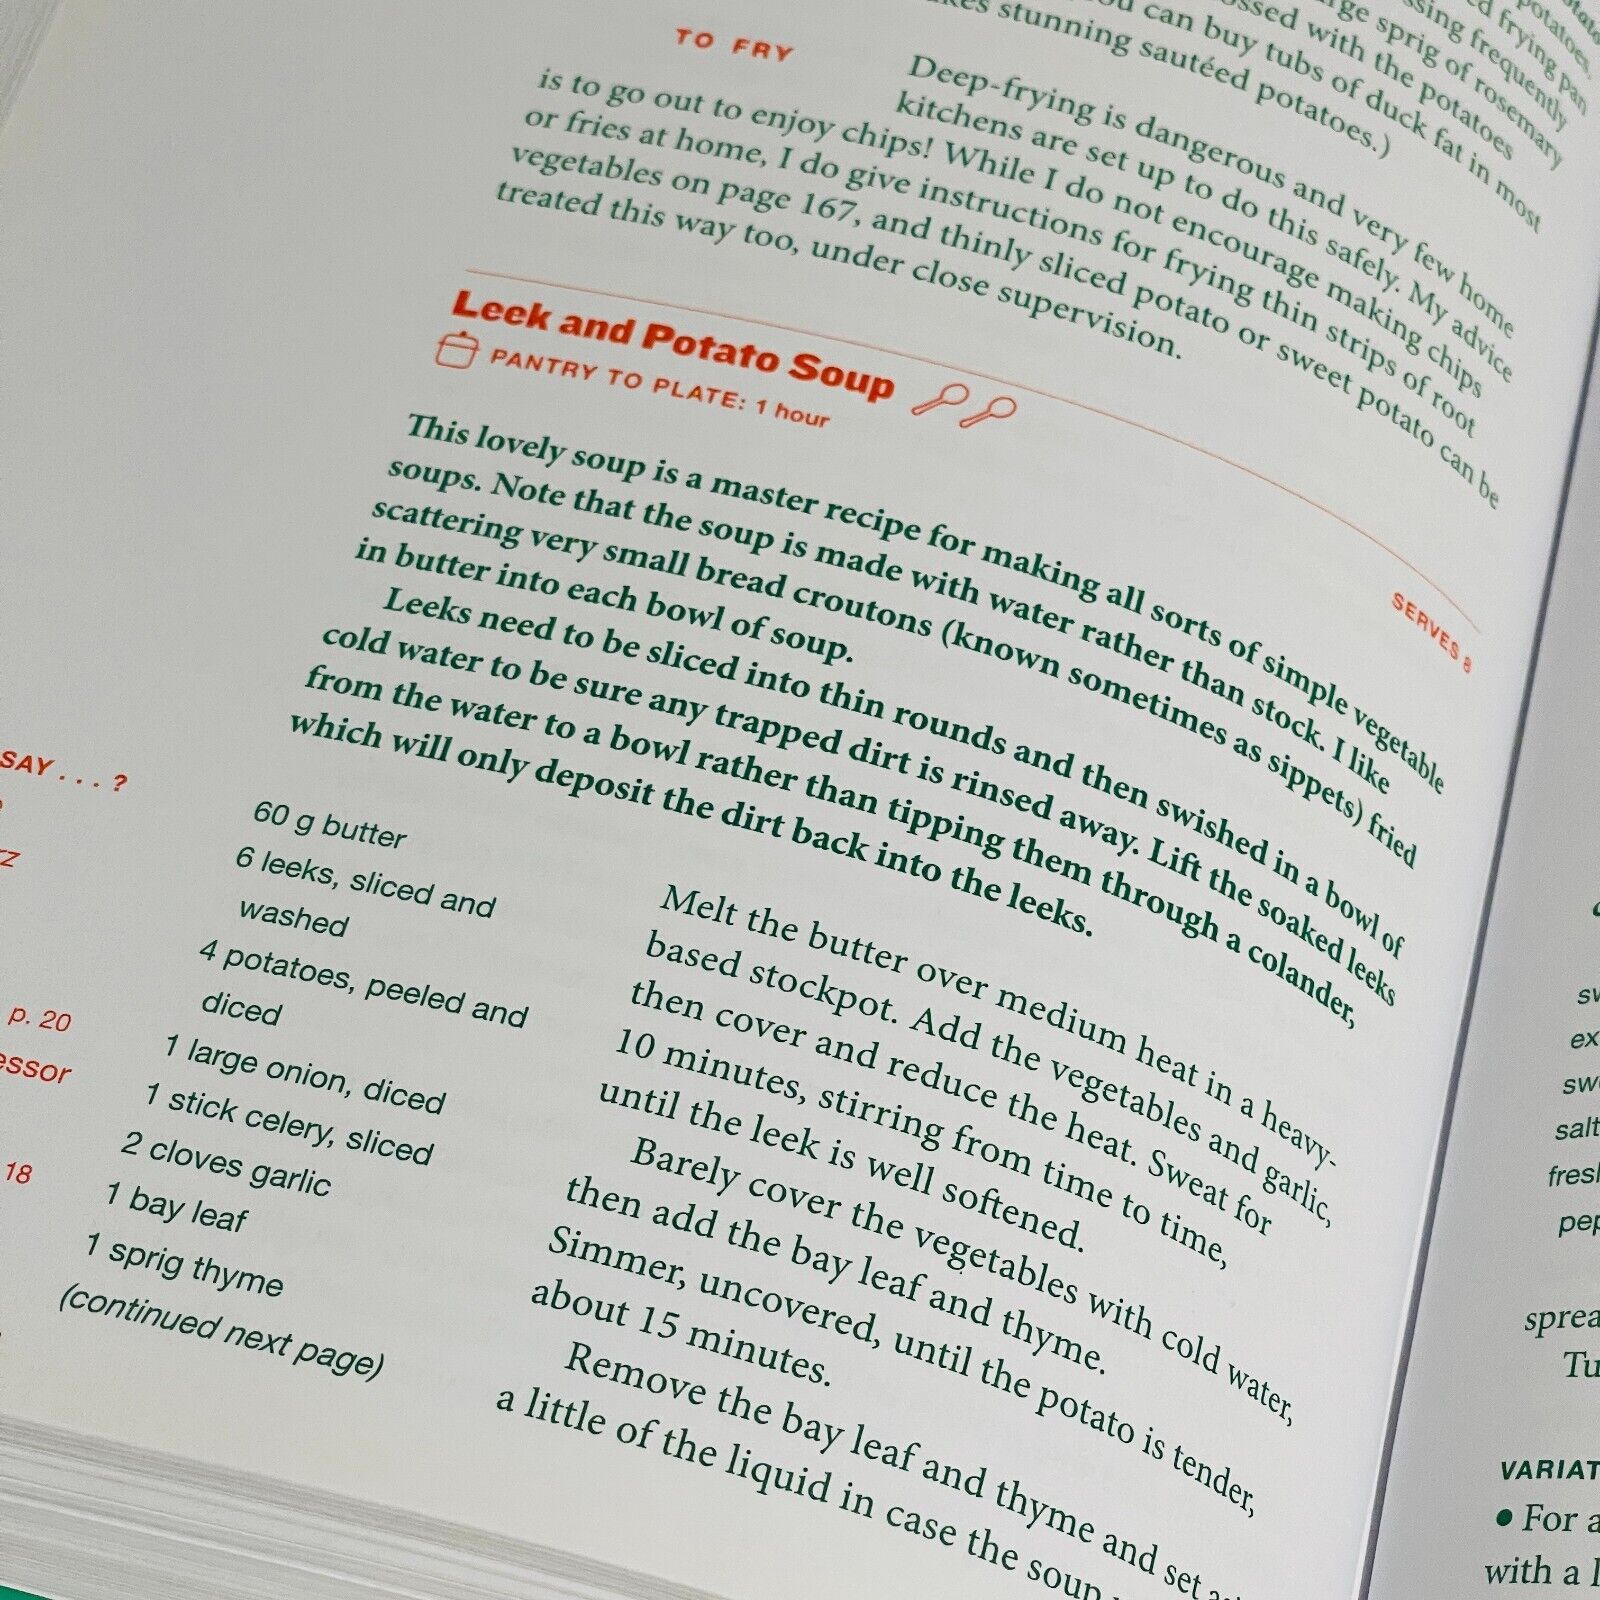 potatoes,
d frying pan
ssing frequently
rge sprig of rosemary
ossed with the potatoes
you can buy tubs of duck fat in most
stunning sautéed potatoes.)
TO FRY
Deep-frying is dangerous and very few home
kitchens are set up to do this safely. My advice
is to go out to enjoy chips! While I do not encourage making chips
or fries at home, I do give instructions for frying thin strips of root
vegetables on page 167, and thinly sliced potato or sweet potato can be
treated this way too, under close supervision.
Leek and Potato Soup
PANTRY TO PLATE: 1 hour
SERVES 8
This lovely soup is a master recipe for making all sorts of simple vegetable
soups. Note that the soup is made with water rather than stock. I like
scattering very small bread croutons (known sometimes as sippets) fried
in butter into each bowl of soup.
Leeks need to be sliced into thin rounds and then swished in a bowl of
cold water to be sure any trapped dirt is rinsed away. Lift the soaked leeks
from the water to a bowl rather than tipping them through a colander,
which will only deposit the dirt back into the leeks.
SAY . . . ?
p. 20
essor
18
60 g butter
6 leeks, sliced and
washed
4 potatoes, peeled and
diced
1 large onion, diced
1 stick celery, sliced
2 cloves garlic
1 bay leaf
1 sprig thyme
(continued next page)
Melt the butter over medium heat in a heavy-
based stockpot. Add the vegetables and garlic,
then cover and reduce the heat. Sweat for
10 minutes, stirring from time to time,
until the leek is well softened.
Barely cover the vegetables with cold water,
then add the bay leaf and thyme.
Simmer, uncovered, until the potato is tender,
about 15 minutes.
Remove the bay leaf and thyme and set
a little of the liquid in case the soup
sw
ex
swe
salt
fresh
pep
sprea
Tu
VARIAT
• For a
with a l